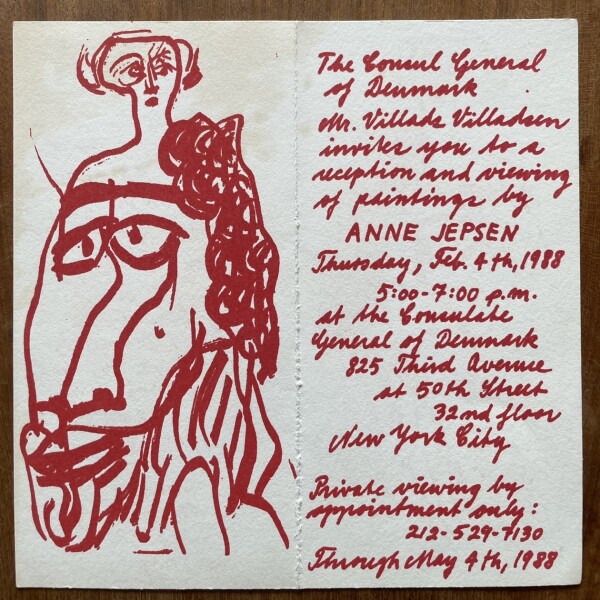 The Consul General
of Denmark
Mr. Villads Villadsen
invites you to a
reception and viewing
of paintings by
ANNE JEPSEN
Thursday, Feb. 4th, 1988
5:00-7:00 p.m.
at the Consulate
General of Denmark
825 Third Avenue
at 50th Street
32nd floor
New York City
Private viewing by
appointment only:
212-529-7130
Through May 4th, 1988